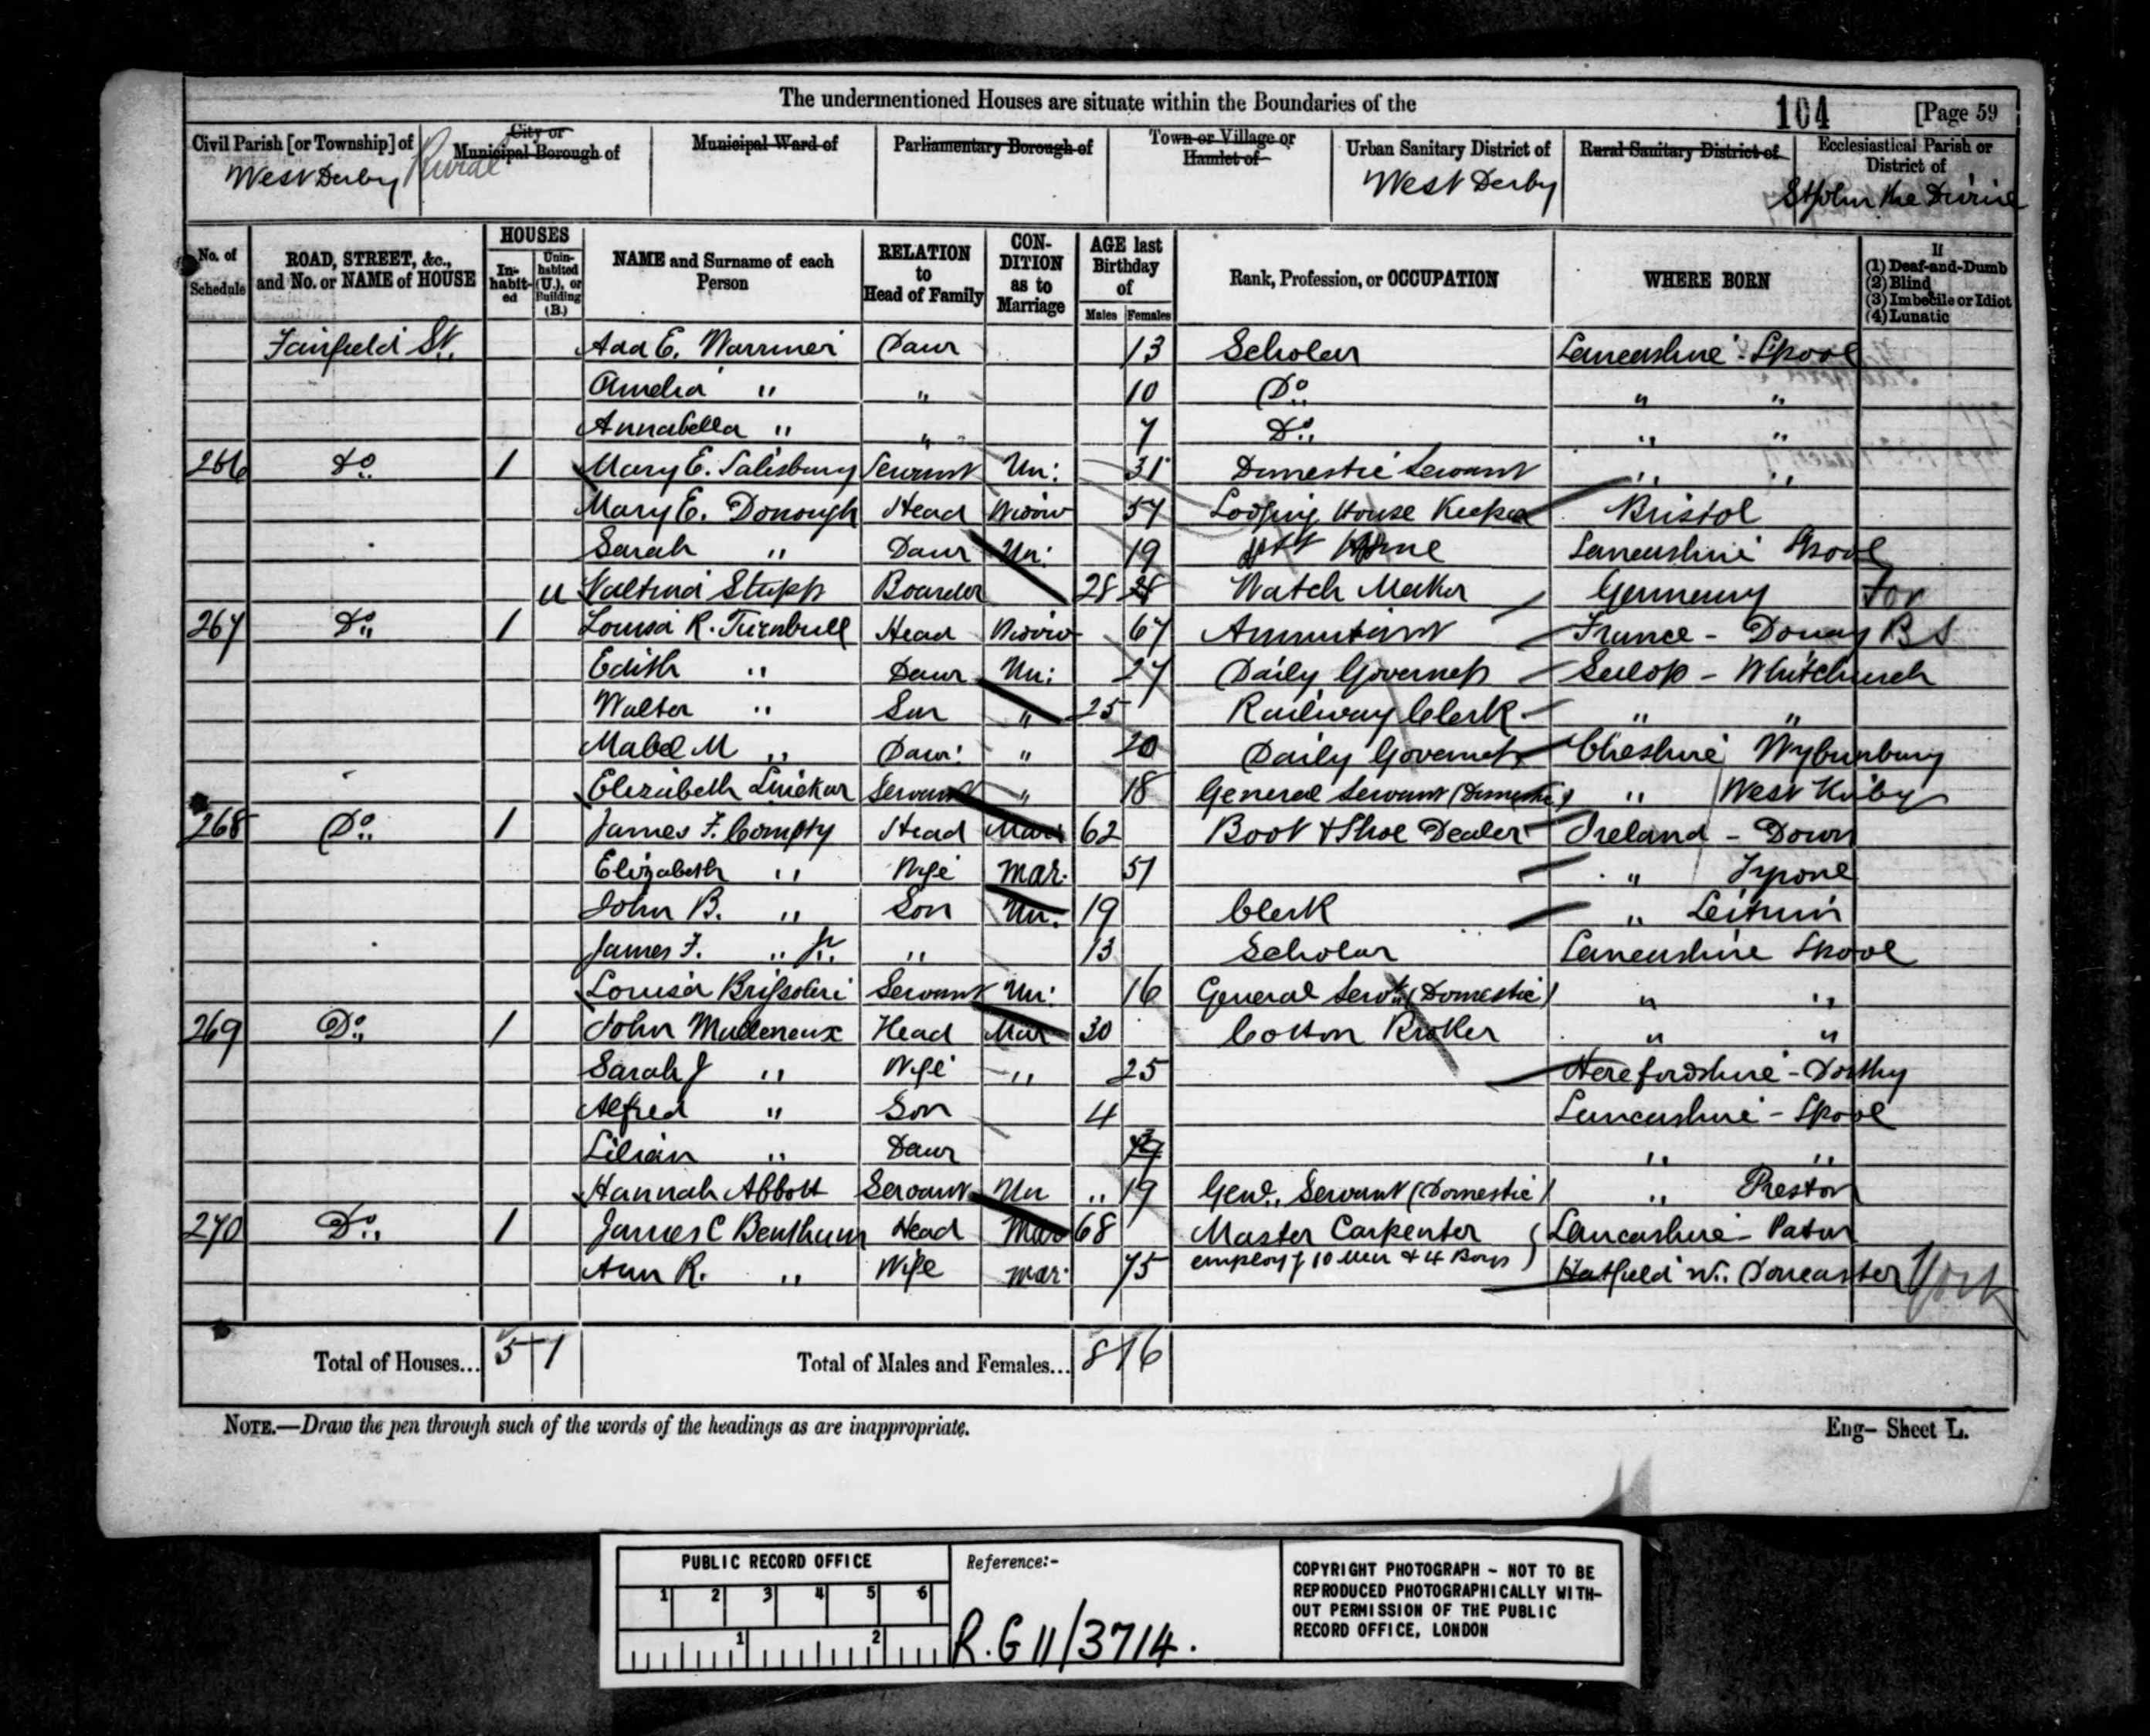 The undermentioned Houses are situate within the Boundaries of the 104 [Page 59
Civil Parish [or Township] of City or Municipal Borough of Municipal Ward of Parliamentary Borough of Town or Village or Hamlet of Urban Sanitary District of Rural Sanitary District of Ecclesiastical Parish or District of
West Derby West Derby St John the Divine
No. of Schedule ROAD, STREET, &c., and No. or NAME of HOUSE HOUSES Inhabited Uninhabited (U.), or Building (B.) NAME and Surname of each Person RELATION to Head of Family CONDITION as to Marriage AGE last Birthday of Males Females Rank, Profession, or OCCUPATION WHERE BORN If (1) Deaf-and-Dumb (2) Blind (3) Imbecile or Idiot (4) Lunatic
Fairfield St. Ada E. Warriner Daur 13 Scholar Lancashire - Lpool
Amelia " " 10 Do. " "
Annabella " " 7 Do. " "
266 Do. 1 Mary E. Salisbury Servant Un: 31 Domestic Servant " "
Mary E. Donough Head Widow 57 Lodging House Keeper Bristol
Sarah " Daur Un: 19 Lancashire Lpool
u Stupp Boarder 28 28 Watch Maker Germany For
267 Do. 1 Louisa R. Turnbull Head Widow 67 Annuitant France - Douay B S
Edith " Daur Un: 27 Daily Governess Salop - Whitchurch
Walter " Son " 25 Railway Clerk " "
Mabel M " Daur: " 20 Daily Governess Cheshire Wybunbury
Elizabeth Servant " 18 General Servant (Domestic) " West Kirby
268 Do. 1 James F. Head Mar: 62 Boot & Shoe Dealer Ireland - Down
Elizabeth " Wife Mar. 51 " Tyrone
John B. " Son Un. 19 Clerk " Leitrim
James F. " Jr. " 13 Scholar Lancashire Lpool
Louisa Servant Un: 16 General Servt. (Domestic) " "
269 Do. 1 John Mulleneux Head Mar 30 Cotton Broker " "
Sarah J " Wife " 25 Herefordshire -
Alfred " Son 4 Lancashire - Lpool
Lilian " Daur " "
Hannah Abbott Servant Un " 19 Genl. Servant (Domestic) " Preston
270 Do. 1 James C Bentham Head Mar 68 Master Carpenter Lancashire -
Ann R. " Wife Mar. 75 employg 10 Men & 4 Boys) Hatfield Nr. Doncaster York
Total of Houses... 5 1 Total of Males and Females... 8 16
NOTE.—Draw the pen through such of the words of the headings as are inappropriate. Eng- Sheet L.
PUBLIC RECORD OFFICE
1 2 3 4 5 6
1 2
Reference:-
R.G 11/3714.
COPYRIGHT PHOTOGRAPH - NOT TO BE
REPRODUCED PHOTOGRAPHICALLY WITH-
OUT PERMISSION OF THE PUBLIC
RECORD OFFICE, LONDON